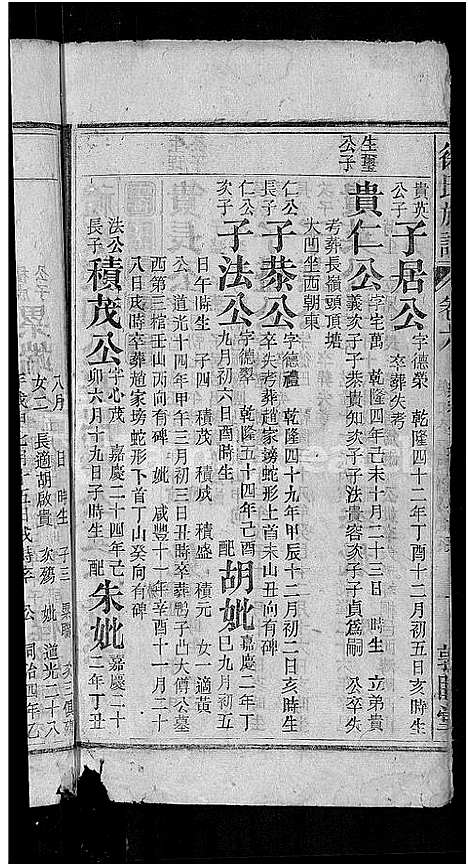 貴英公子
子居公
字德榮 乾隆四十二年丁酉十二月初五日亥時生
卒葬失考
生璽公子
貴仁公
字宅萬 乾隆四年己未十月二十三日 時生 立弟貴
義次子子恭貴知次子子法貴容次子子貞爲嗣 公卒失
考葬長嶺頭頂塘
大凹坐西朝東
仁公長子
子恭公
字德禮 乾隆四十九年甲辰十二月初二日亥時生
卒失考葬趙家塝蛇形上首未山丑向有碑
仁公次子
子法公
字德翠 乾隆五十四年己酉
九月初六日酉時生
配
胡妣
嘉慶二年丁
巳九月初五
日午時生 子四 積茂 積成 積盛 積元 女一適黃
公 道光十四年甲午三月初三日丑時卒葬 子凸大傅公墓
西第三棺壬山丙向有碑 妣 咸豐十一年辛酉十一月二十
八日戌時卒葬趙家塝蛇形下首丁山癸向有碑
法公長子
積茂公
字心茂 嘉慶二十四年己
卯六月十九日子時生
配
朱妣
嘉慶二十
二年丁丑
八月 日 時生 子三
女二 長適胡啟貴 次殤 妣 道光二十八
公 同治四年乙